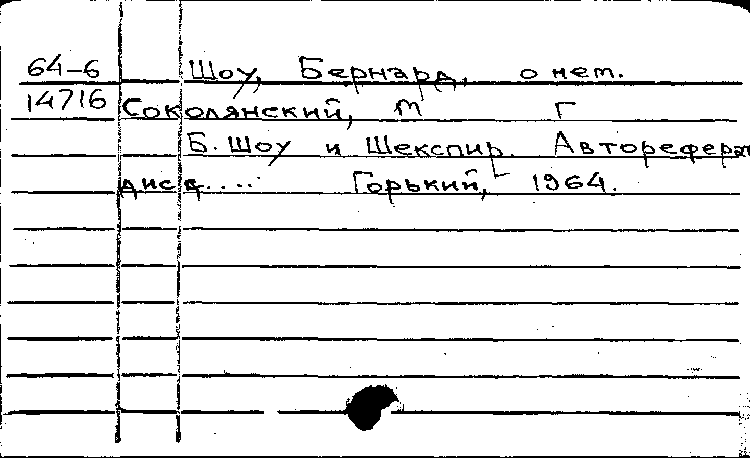 64-6 Шоу, Бернард, о нем.
14716 Соколянский, М Г
Б. Шоу и Шекспир. Автореферат
дисс..... Горький, 1964.